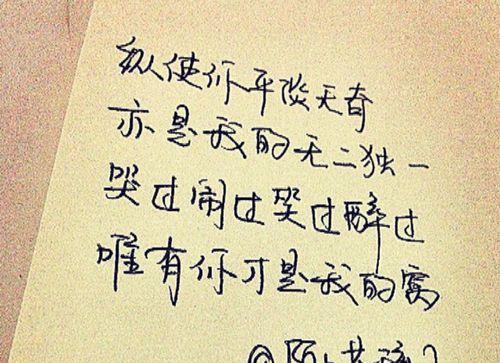 纵使你平淡无奇
亦是我的无二独一
哭过闹过哭过醉过
唯有你才是我的窝
@陌上